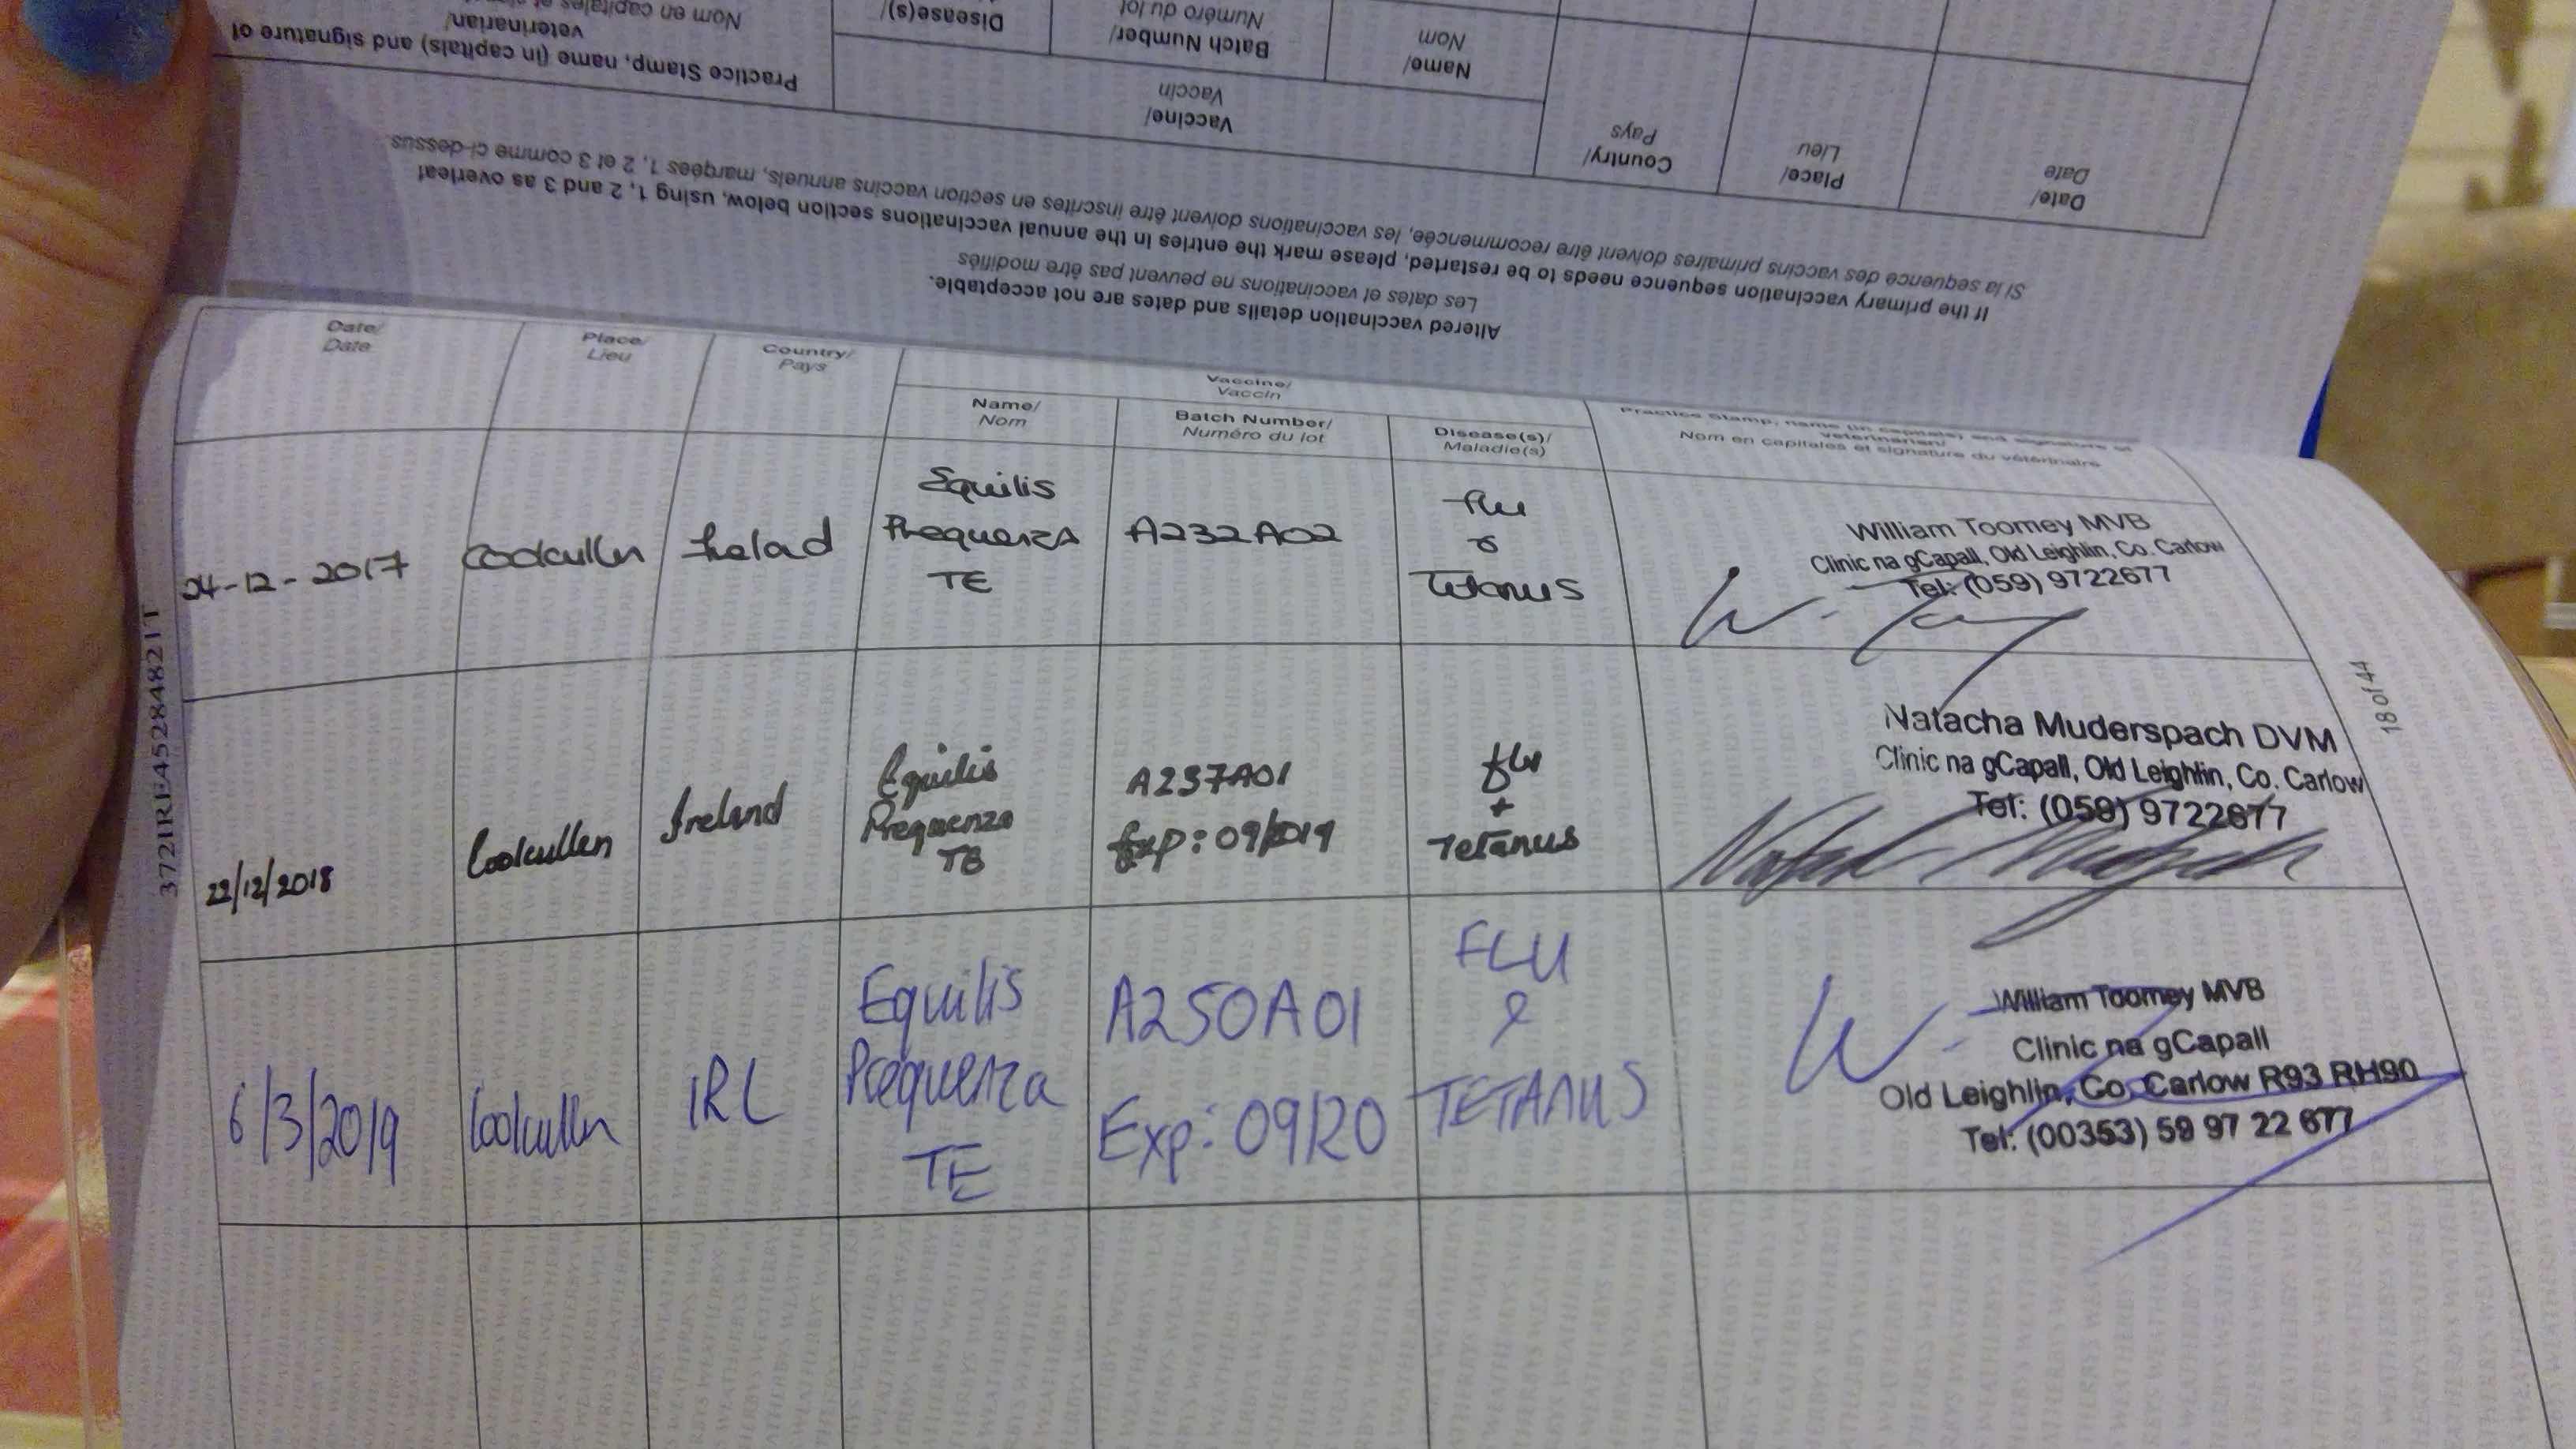 Practice Stamp, name (in capitals) and signature of
veterinarian/
Nom en capitales et
Disease(s)/
Batch Number/
Numéro du lot
Name/
Nom
Vaccine/
Vaccin
Country/
Pays
Place/
Lieu
Date/
Date
If the primary vaccination sequence needs to be restarted, please mark the entries in the annual vaccinations section below, using 1, 2 and 3 as overleaf
Si la sequence des vaccins primaires doivent être recommencée, les vaccinations doivent être inscrites en section vaccins annuels, marqées 1, 2 et 3 comme ci-dessus
Altered vaccination details and dates are not acceptable.
Les dates et vaccinations ne peuvent pas être modifiés
Date/
Date
Place/
Lieu
Country/
Pays
Vaccine/
Vaccin
Name/
Nom
Batch Number/
Numéro du lot
Disease(s)/
Maladie(s)
Practice Stamp, name (in capitals) and signature of
veterinarian/
Nom en capitales et signature du vétérinaire
24-12-2017
Coolcullen
Ireland
Equilis
Prequenza
TE
A232A02
Flu
&
Tetanus
William Toomey MVB
Clinic na gCapall, Old Leighlin, Co. Carlow
Tel: (059) 9722677
22/12/2018
Coolcullen
Ireland
Equilis
Prequenza
TE
A237A01
Exp: 09/2019
flu
+
Tetanus
Natacha Muderspach DVM
Clinic na gCapall, Old Leighlin, Co. Carlow
Tel: (059) 9722677
6/3/2019
Coolcullen
IRL
Equilis
Prequenza
TE
A250A01
Exp: 09/20
FLU
&
TETANUS
William Toomey MVB
Clinic na gCapall
Old Leighlin, Co. Carlow R93 RH90
Tel: (00353) 59 97 22 677
18 of 44